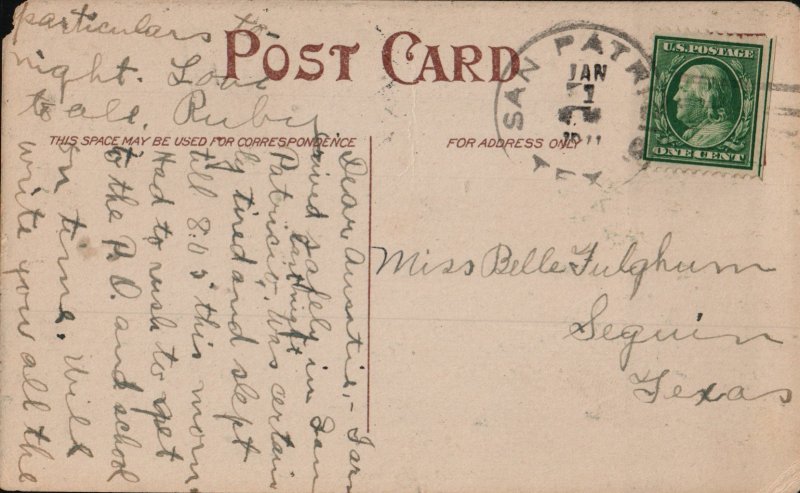 POST CARD
THIS SPACE MAY BE USED FOR CORRESPONDENCE
FOR ADDRESS ONLY
SAN PATRI
JAN
1
U.S. POSTAGE
ONE CENT
Miss Belle Fulghum
Seguin
Texas
Dear Auntie,- I arr
ived safely in San
Patricio last night
Was certain
ly tired and slept
till 8:05 this morn.
Had to rush to get
to the P.O. and school
on time. Will
write you all the
particulars to
night. Love
to all. Ruby